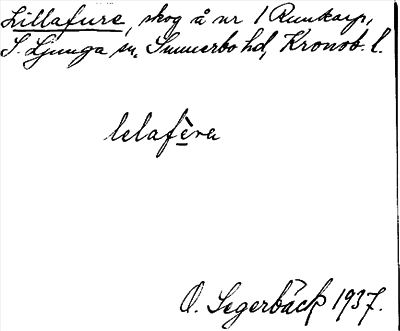 Lillafure, skog å nr 1 Runkarp,
S. Ljunga sn. Sunnerbo hd, Kronob. l.
lelafèra
O. Segerbäck 1937.